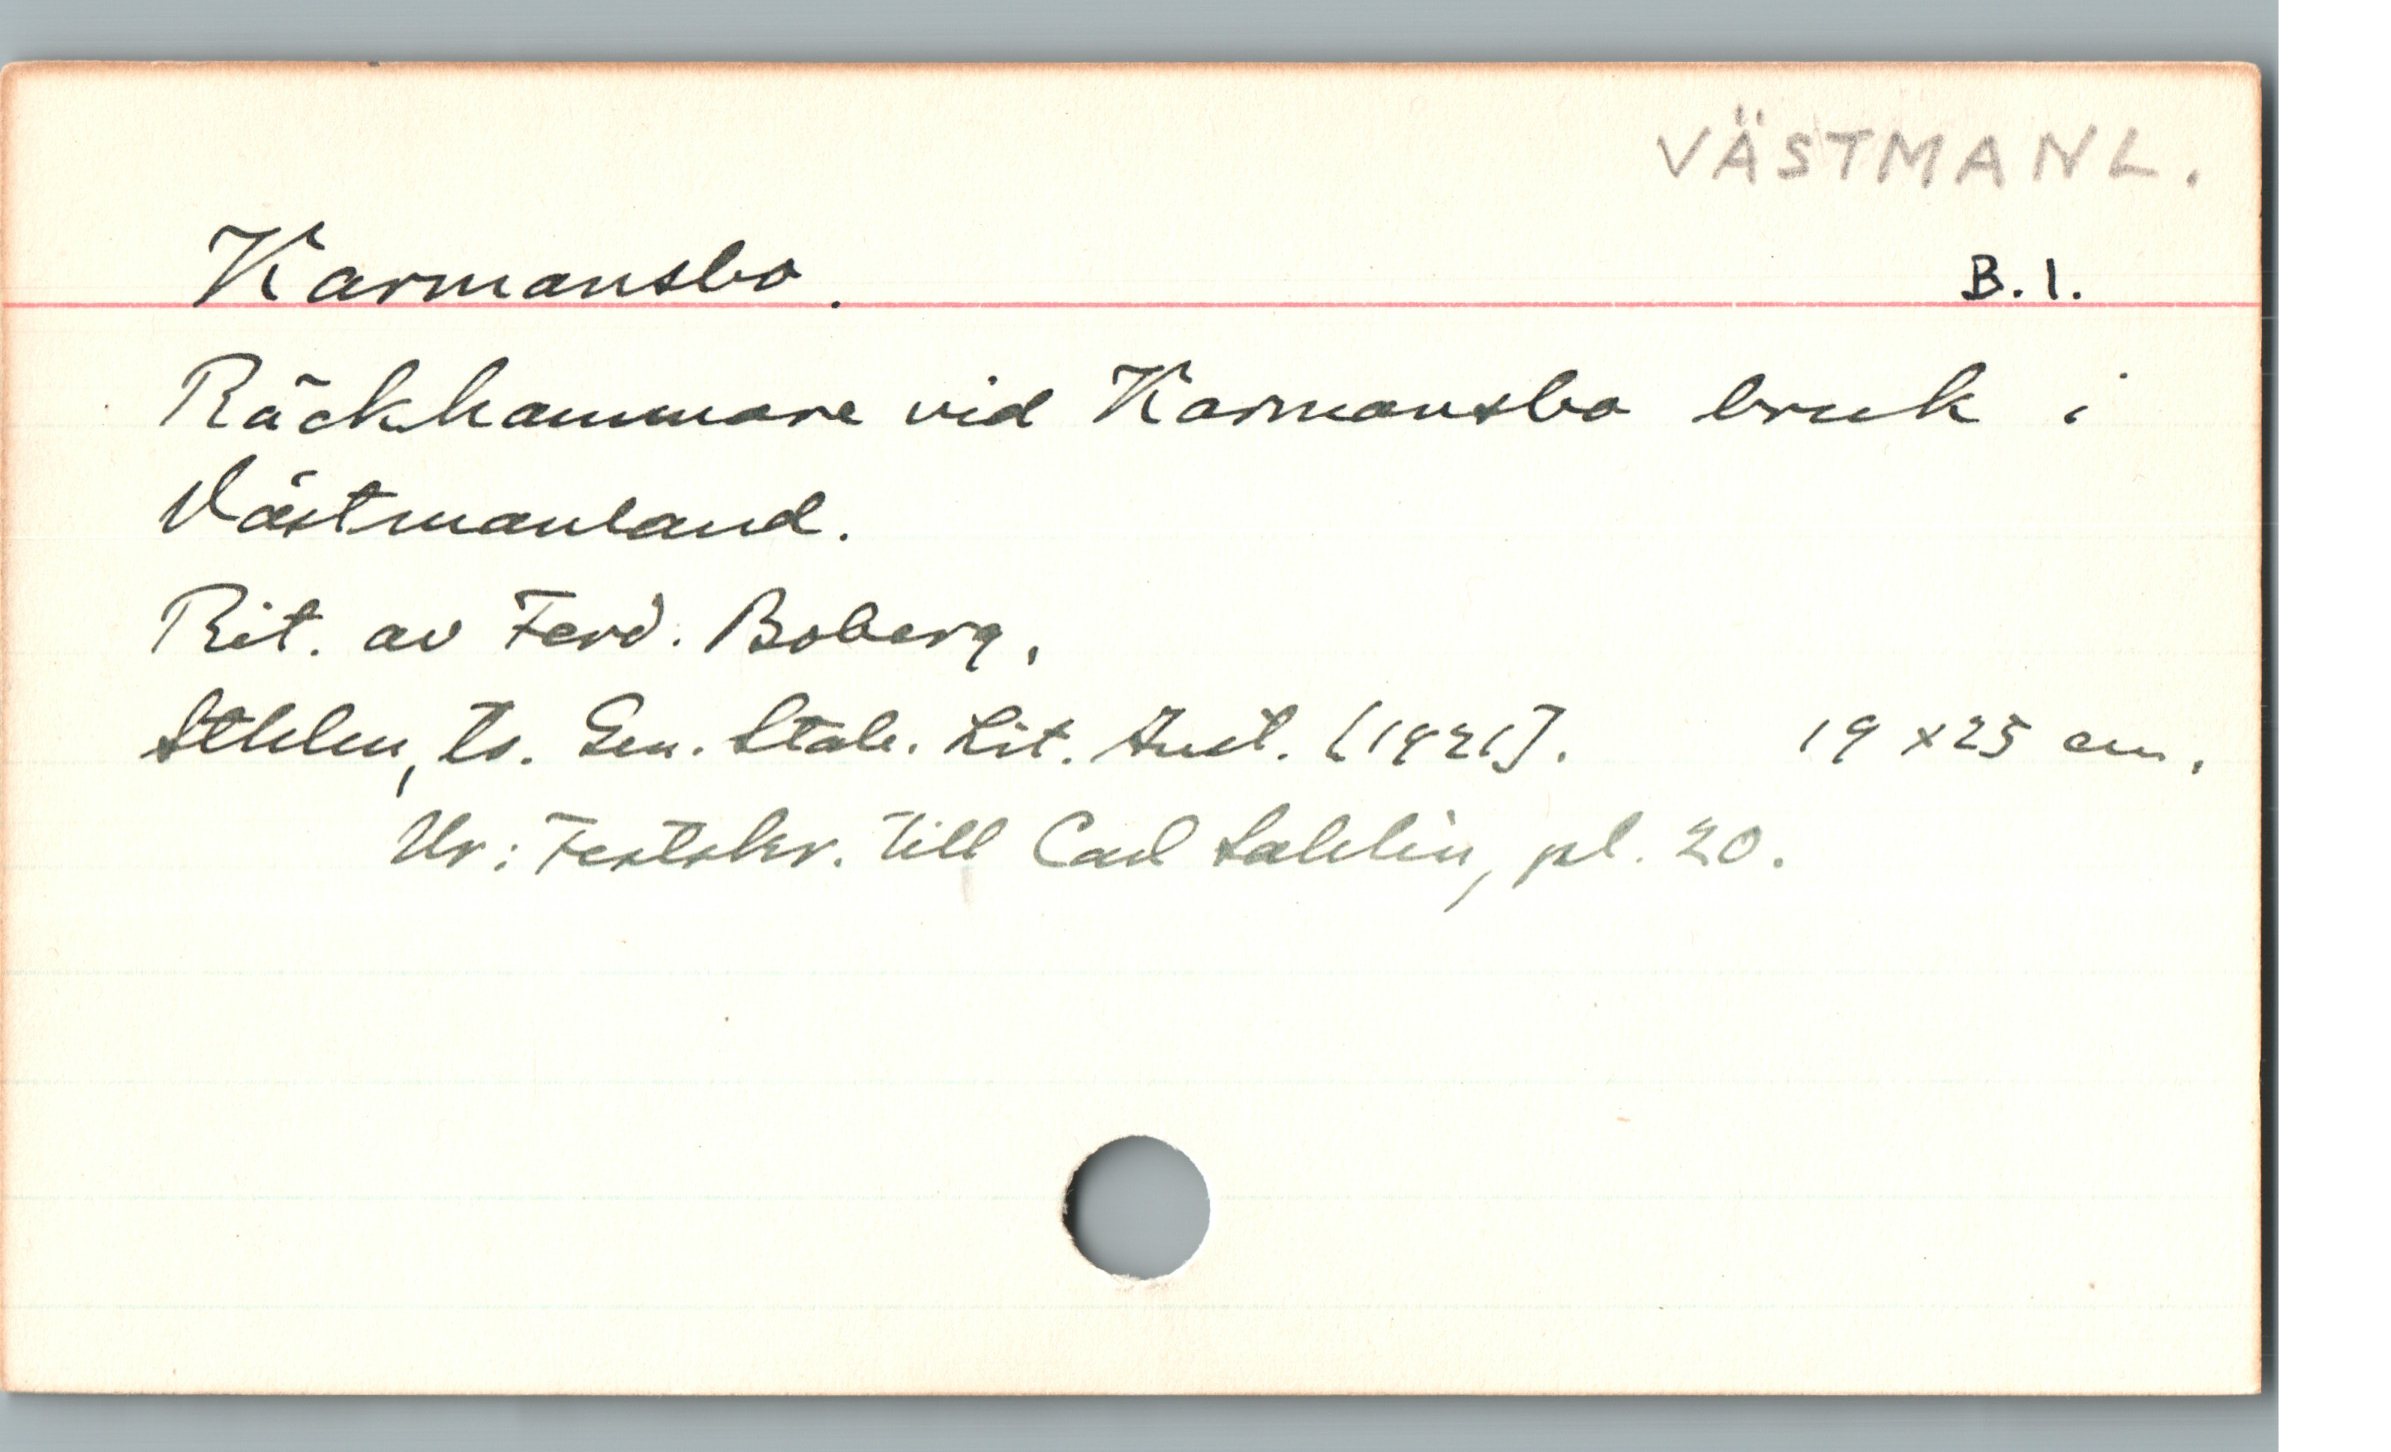 VÄSTMANL.
Karmansbo.
B.1.
Räckhammare vid Karmansbo bruk i
Västmanland.
Rit. av Ferd. Boberg.
Sthlm, ts. Gen. Stab. Lit. Anst. [1921]. 19 x 25 cm.
Ur: Festskr. till Carl Sahlin, pl. 20.